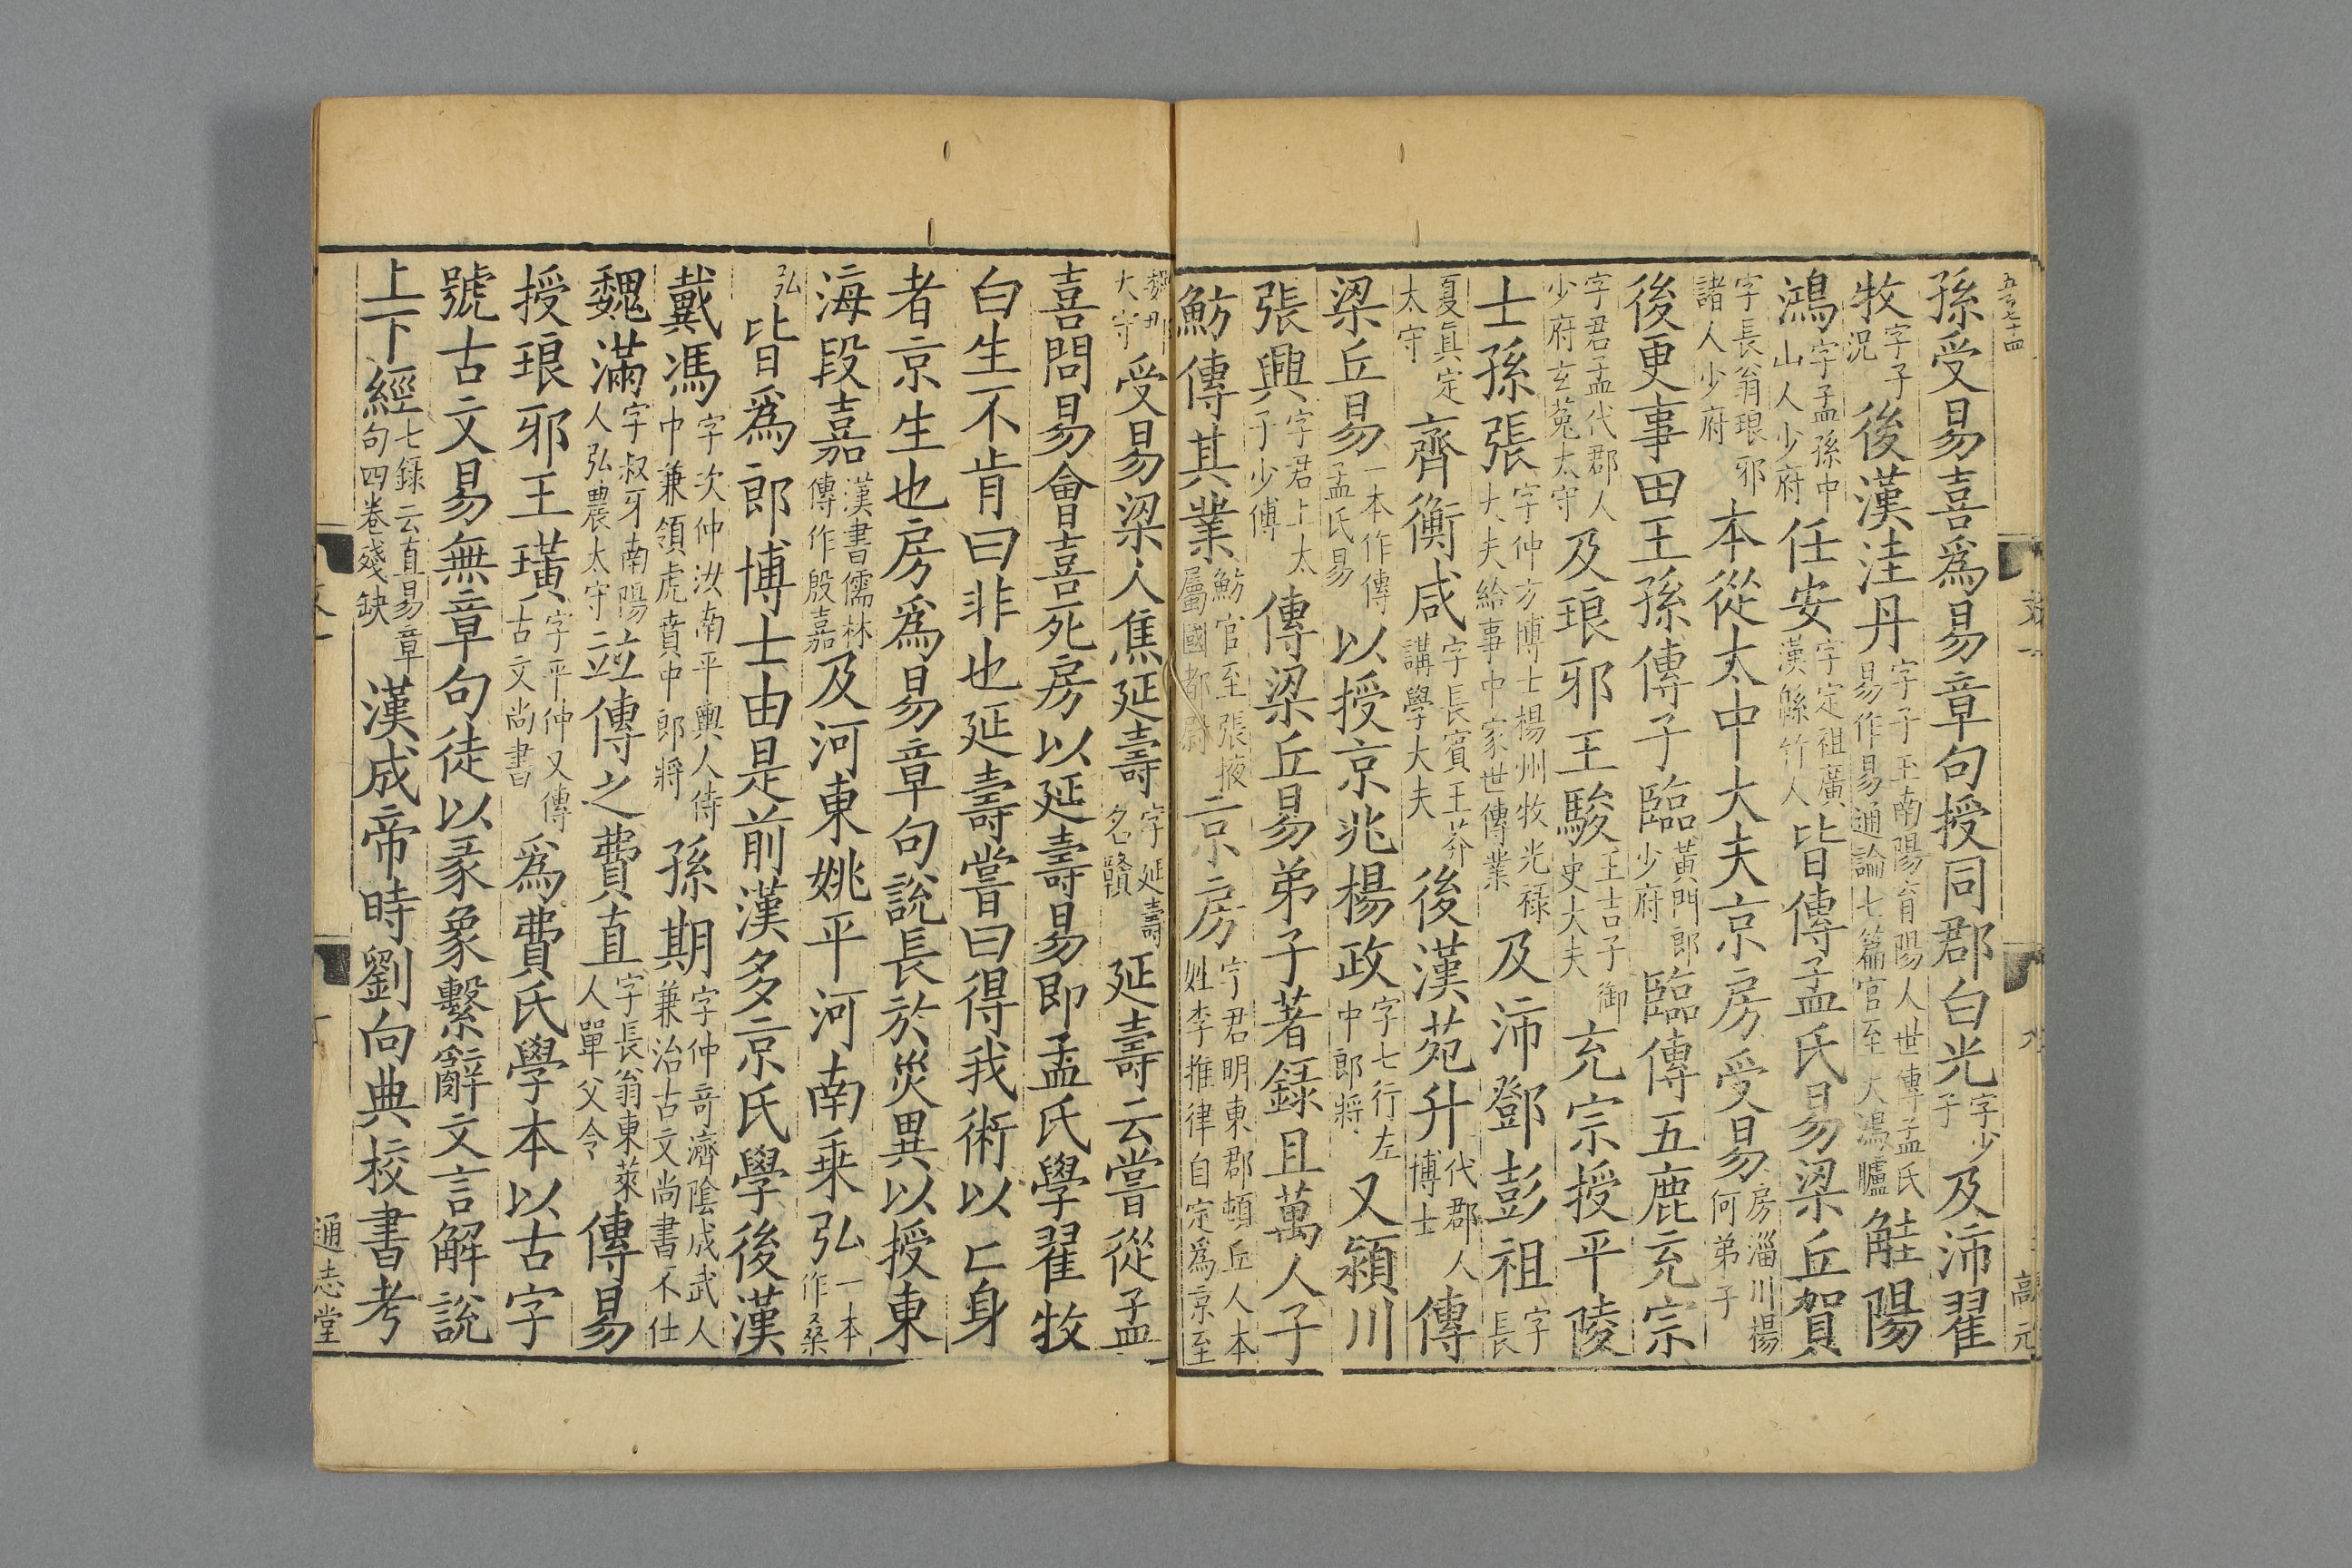 五百七十四
孫受易喜爲易章句授同郡白光字少子及沛翟
牧字子況後漢洼丹字子玉南陽育陽人世傳孟氏易作易通論七篇官至大鴻臚觟陽
鴻字孟孫中山人少府任安字定祖廣漢緜竹人皆傳孟氏易梁丘賀
字長翁琅邪諸人少府本從太中大夫京房受易房淄川楊何弟子
後更事田王孫傳子臨黃門郎少府臨傳五鹿充宗
字君孟代郡人少府玄菟太守及琅邪王駿王吉子御史大夫充宗授平陵
士孫張字仲方博士楊州牧光祿大夫給事中家世傳業及沛鄧彭祖字長
夏真定太守齊衡咸字長賓王莽講學大夫後漢范升代郡人博士傳
梁丘易一本作傳孟氏易以授京兆楊政字七行左中郎將又潁川
張興字君上太子少傅傳梁丘易弟子著録且萬人子
魴傳其業魴官至張掖屬國都尉京房字君明東郡頓丘人本姓李推律自定爲京至
大守受易梁人焦延壽字延壽名贛延壽云嘗從孟
喜問易會喜死房以延壽易即孟氏學翟牧
白生不肯曰非也延壽嘗曰得我術以亡身
者京生也房爲易章句說長於災異以授東
海段嘉漢書儒林傳作殷嘉及河東姚平河南乗弘一本作桑
弘皆爲郎博士由是前漢多京氏學後漢
戴馮字次仲汝南平輿人侍中兼領虎賁中郎將孫期字仲奇濟陰成武人兼治古文尚書不仕
魏滿字叔牙南陽人弘農太守竝傳之費直字長翁東萊人單父令傳易
授琅邪王璜字平仲又傳古文尚書爲費氏學本以古字
號古文易無章句徒以彖象繫辭文言解說
上下經七録云直易章句四卷殘缺漢成帝時劉向典校書考
通志堂